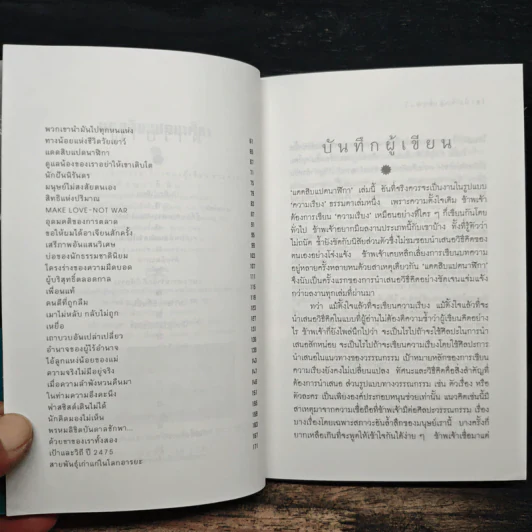 พวกเขานำมันไปทุกหนแห่ง
ทางน้อยแห่งชีวิตวัยเยาว์
แดดสิบแปดนาฬิกา
ดูแลน้องของเราอย่าให้เขาเติบโต
นักฝันนิรันดร
มนุษย์ไม่สงสัยตนเอง
สิทธิแห่งปริมาณ
MAKE LOVE-NOT WAR
อุดมคติของการตลาด
ขอให้ผมได้อาเจียนสักครั้ง
เสรีภาพอันแสนวิเศษ
บ่อของนักธรรมชาตินิยม
โครงร่างของความมืดบอด
ผู้บริสุทธิ์ตลอดกาล
เพื่อนแท้
คนดีที่ถูกลืม
เมาไม่หลับ กลับไม่ถูก
เหยื่อ
เถาบวบอันเปล่าเปลี่ยว
อำนาจของผู้ไร้อำนาจ
ไอ้ลูกแหง่น้อยของแม่
ความจริงไม่มีอยู่จริง
เมื่อความลำพังหวนคืนมา
ในท่ามความอึงคะนึง
ฟาสซิสต์เดินไม่ได้
นักคิดมองไม่เห็น
พรหมลิขิตบันดาลชักพา...
ด้วยขาของเราทั้งสอง
เป้าและวิถี ปี 2475
สายพันธุ์เก่าแก่ในโลกอารยะ
171
บันทึกผู้เขียน
'แดดสิบแปดนาฬิกา' เล่มนี้ อันที่จริงควรจะเป็นงานในรูปแบบ
'ความเรียง' ธรรมดาเล่มหนึ่ง เพราะความตั้งใจเดิม ข้าพเจ้า
ต้องการเขียน 'ความเรียง' เหมือนอย่างที่ใคร ๆ ก็เขียนกันโดย
ทั่วไป ข้าพเจ้าอยากมีผลงานประเภทนี้กับเขาบ้าง ทั้งที่รู้ตัวว่า
ไม่ถนัด ซ้ำยังขัดกับนิสัยส่วนตัวซึ่งไม่ชมชอบนำเสนอวิธีคิดของ
ตนเองอย่างโจ่งแจ้ง ข้าพเจ้าเคยหลีกเลี่ยงการเขียนบทความ
อยู่หลายครั้งหลายหนด้วยสาเหตุเดียวกัน 'แดดสิบแปดนาฬิกา'
จึงนับเป็นครั้งแรกของการนำเสนอวิธีคิดอย่างชัดเจนแจ่มแจ้ง
กว่าผลงานทุกเล่มที่ผ่านมา
ทว่า แม้ตั้งใจแล้วที่จะเขียนความเรียง แม้ตั้งใจแล้วที่จะ
นำเสนอวิธีคิดในแบบที่ผู้อ่านไม่ต้องตีความซ้ำว่าผู้เขียนคิดอย่าง
ไร ข้าพเจ้าก็ยังไพล่นึกไปว่า จะเป็นไรไปถ้าจะใช้ศิลปะในการนำ
เสนอสักหน่อย จะเป็นไรไปถ้าจะเขียนความเรียงโดยใช้ศิลปะการ
นำเสนอในแนวทางของวรรณกรรม เป้าหมายหลักของการเขียน
ความเรียงยังคงไม่เปลี่ยนแปลง ทัศนะและวิธีคิดคือสิ่งสำคัญที่
ต้องการนำเสนอ ส่วนรูปแบบทางวรรณกรรม เช่น ตัวเรื่อง หรือ
ตัวละคร เป็นเพียงองค์ประกอบหนุนช่วยเท่านั้น แนวคิดเช่นนี้มี
สาเหตุมาจากความเชื่อถือที่ข้าพเจ้ามีต่อศิลปะวรรณกรรม เรื่อง
บางเรื่องโดยเฉพาะสภาวะอันล้ำลึกของมนุษย์เรานี้ บางครั้งก็
ยากเหลือเกินที่จะพูดให้เข้าใจกันได้ง่าย ๆ ข้าพเจ้าเชื่อมาแต่